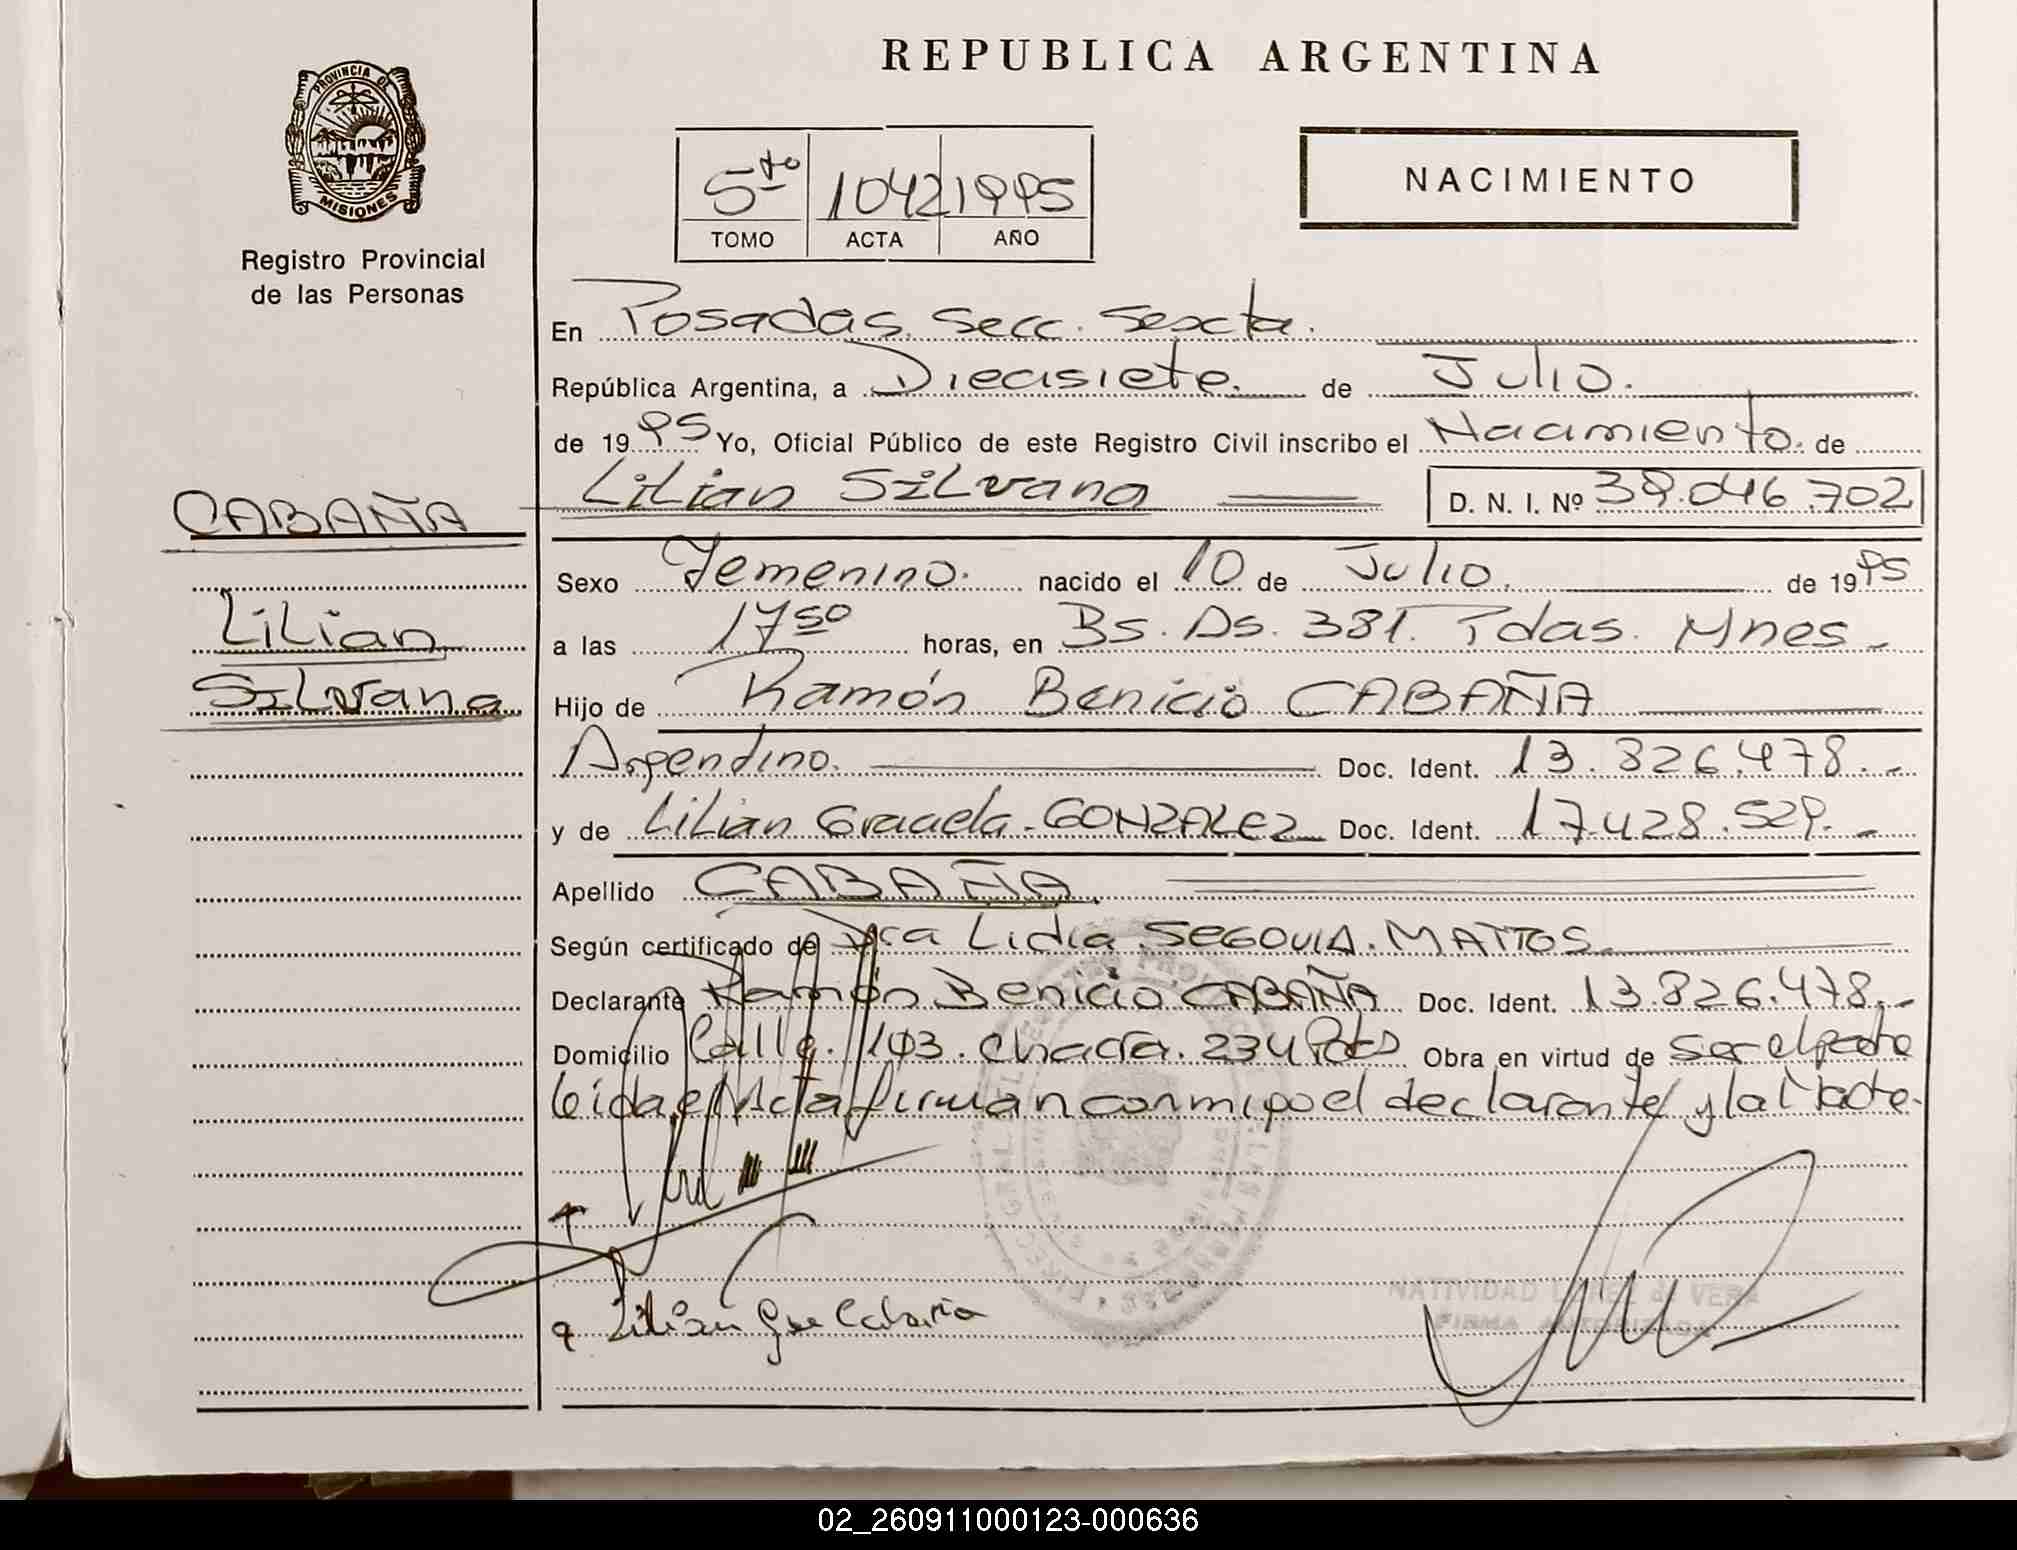 REPUBLICA ARGENTINA
PROVINCIA DE
MISIONES
Registro Provincial
de las Personas
5to 1042 1995
TOMO ACTA AÑO
NACIMIENTO
En Posadas. Secc. Sexta.
República Argentina, a Diecisiete. de Julio.
de 1995 Yo, Oficial Público de este Registro Civil inscribo el Nacimiento. de
CABAÑA
Lilian Silvana D. N. I. Nº 39.046.702
Sexo Femenino. nacido el 10 de Julio. de 1995
Lilian
a las 17 50 horas, en Bs. As. 381. Pdas. Mnes
Silvana
Hijo de Ramón Benicio CABAÑA
Argentino. Doc. Ident. 13.826.478.-
y de Lilian Graciela. GONZALEZ Doc. Ident. 17.428.529.-
Apellido CABAÑA.
Según certificado de Dra Lidia SEGOVIA. MATTOS
Declarante Ramón Benicio CABAÑA Doc. Ident. 13.826.478.-
Domicilio Calle. 103. Chacra. 234 Pdas Obra en virtud de ser el padre
leida el Acta firman conmigo el declarante y la Madre.
NATIVIDAD de VERA
FIRMA AUTORIZADA
02_260911000123-000636